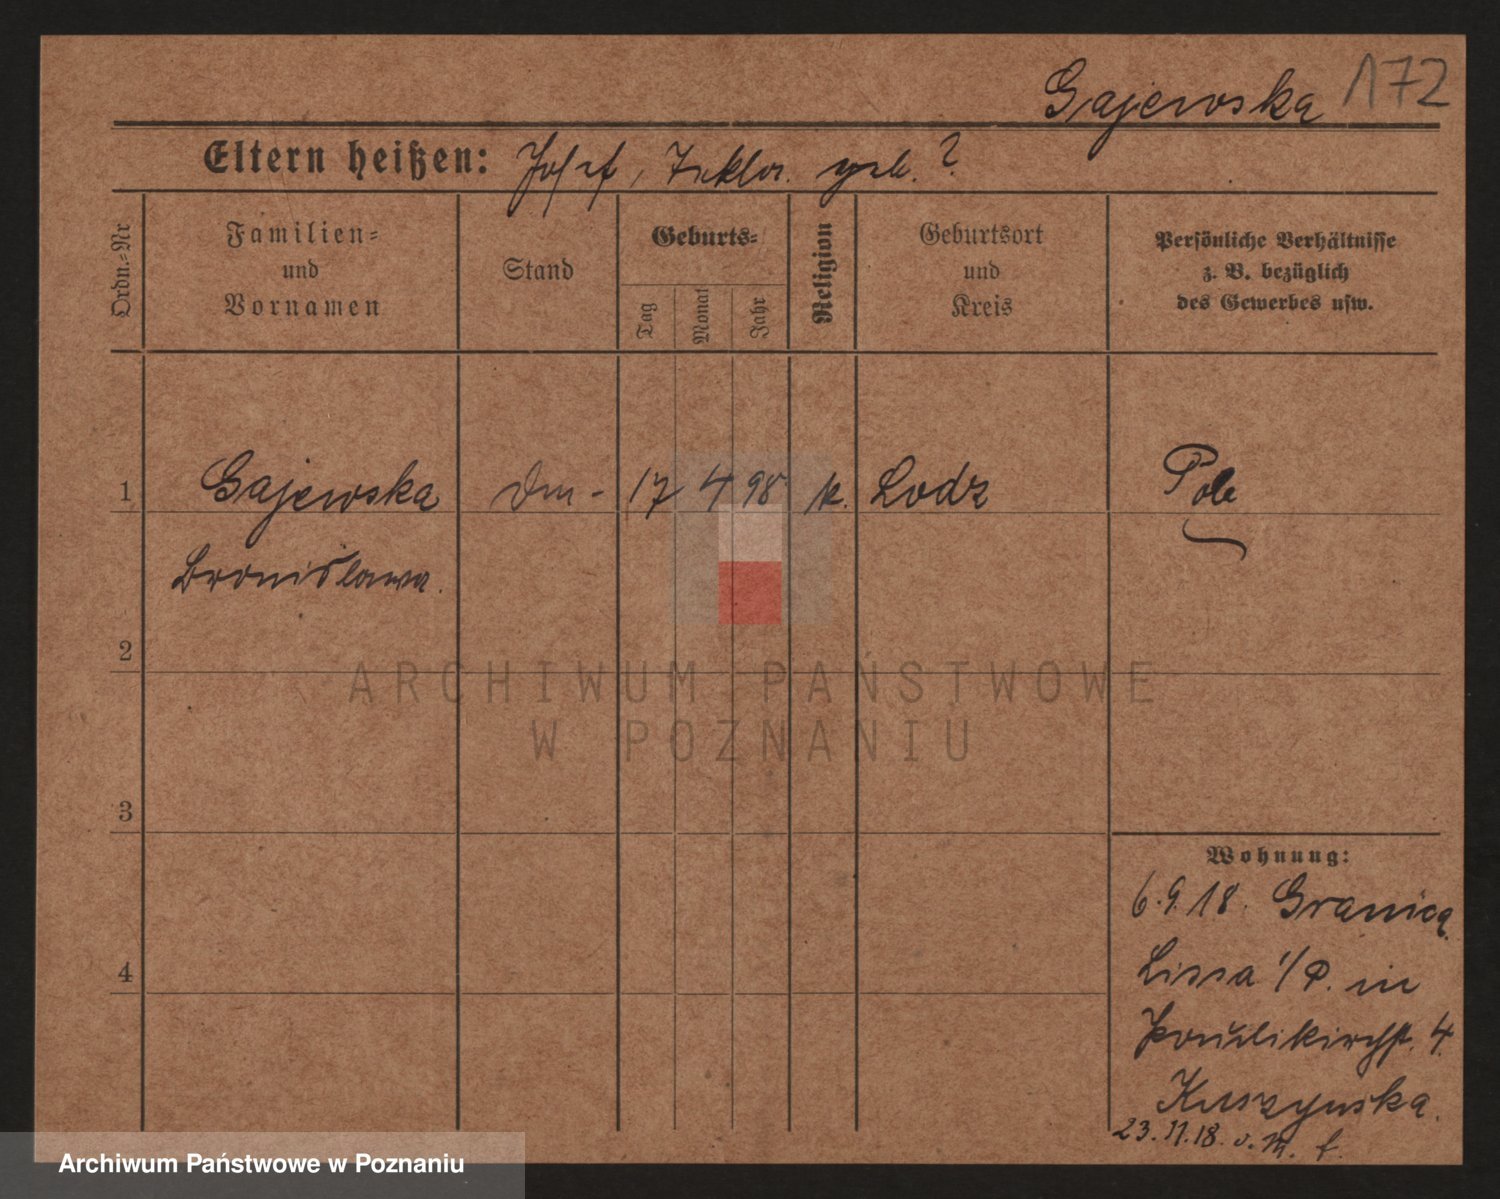 Gajewska 172
Eltern heißen: Josef, Tekla. geb. ?
Ordn.=Nr
Familien=
und
Vornamen
Stand
Geburts=
Tag
Monat
Jahr
Religion
Geburtsort
und
Kreis
Persönliche Verhältnisse
z. B. bezüglich
des Gewerbes usw.
1
Gajewska
17 4 98 k. Lodz
Pole
Bronislawa.
2
ARCHIWUM PAŃSTWOWE
W POZNANIU
3
Wohnung:
6.9.18. Granica
Lissa i/P. in
4
Paulikirchst. 4.
Kuszynska.
23.11.18. v.
Archiwum Państwowe w Poznaniu